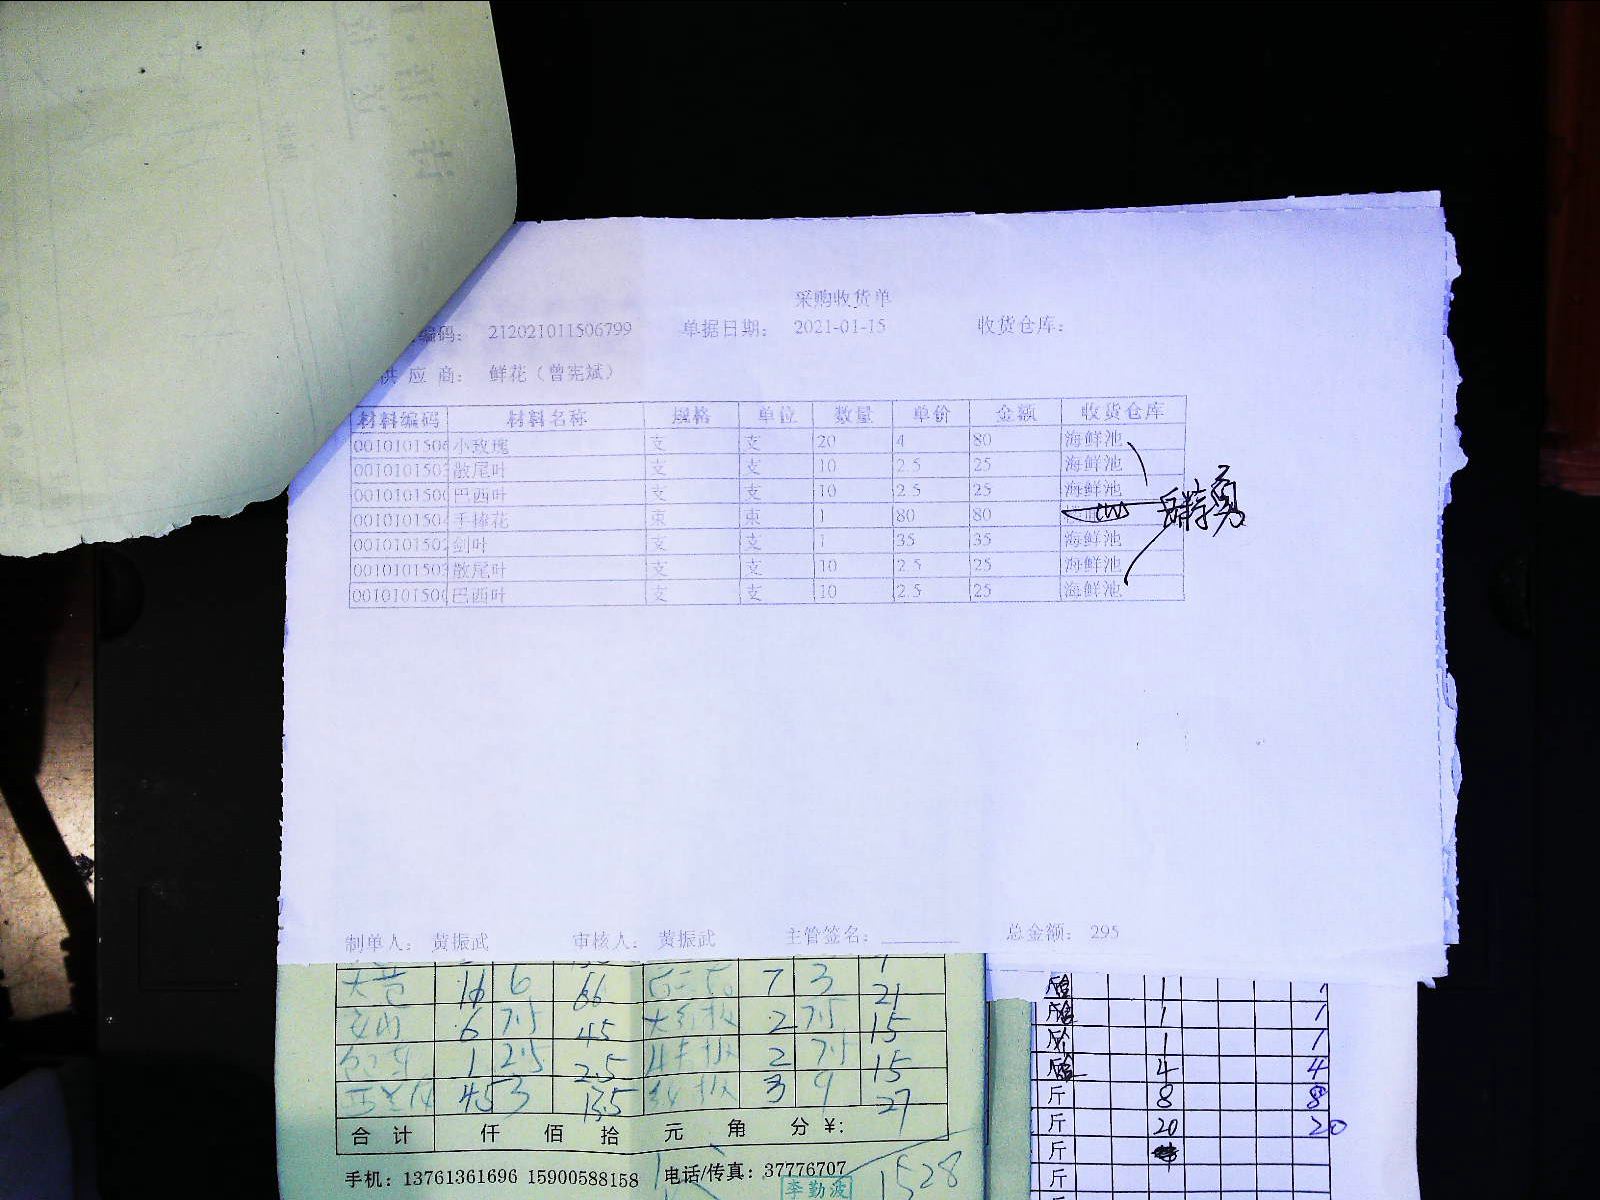 采购收货单
编码： 212021011506799 单据日期： 2021-01-15 收货仓库：
供 应 商： 鲜花（曾宪斌）
材料编码 材料名称 规格 单位 数量 单价 金额 收货仓库
0010101506 小玫瑰 支 支 20 4 80 海鲜池
0010101503 散尾叶 支 支 10 2.5 25 海鲜池
0010101500 巴西叶 支 支 10 2.5 25 海鲜池
0010101504 手捧花 束 束 1 80 80
0010101502 剑叶 支 支 1 35 35 海鲜池
0010101503 散尾叶 支 支 10 2.5 25 海鲜池
0010101500 巴西叶 支 支 10 2.5 25 海鲜池
制单人： 黄振武 审核人： 黄振武 主管签名： 总金额： 295
16 6 66 7 3 21
6 7.5 45 2 7.5 15
1 2.5 2.5 2 7.5 15
45 3 135 3 9 27
合 计 仟 佰 拾 元 角 分 ￥:
手机：13761361696 15900588158 电话/传真：37776707
李勤波 1528
1 1
1 1
1 1
4 4
斤 8 8
斤 20 20
斤
斤